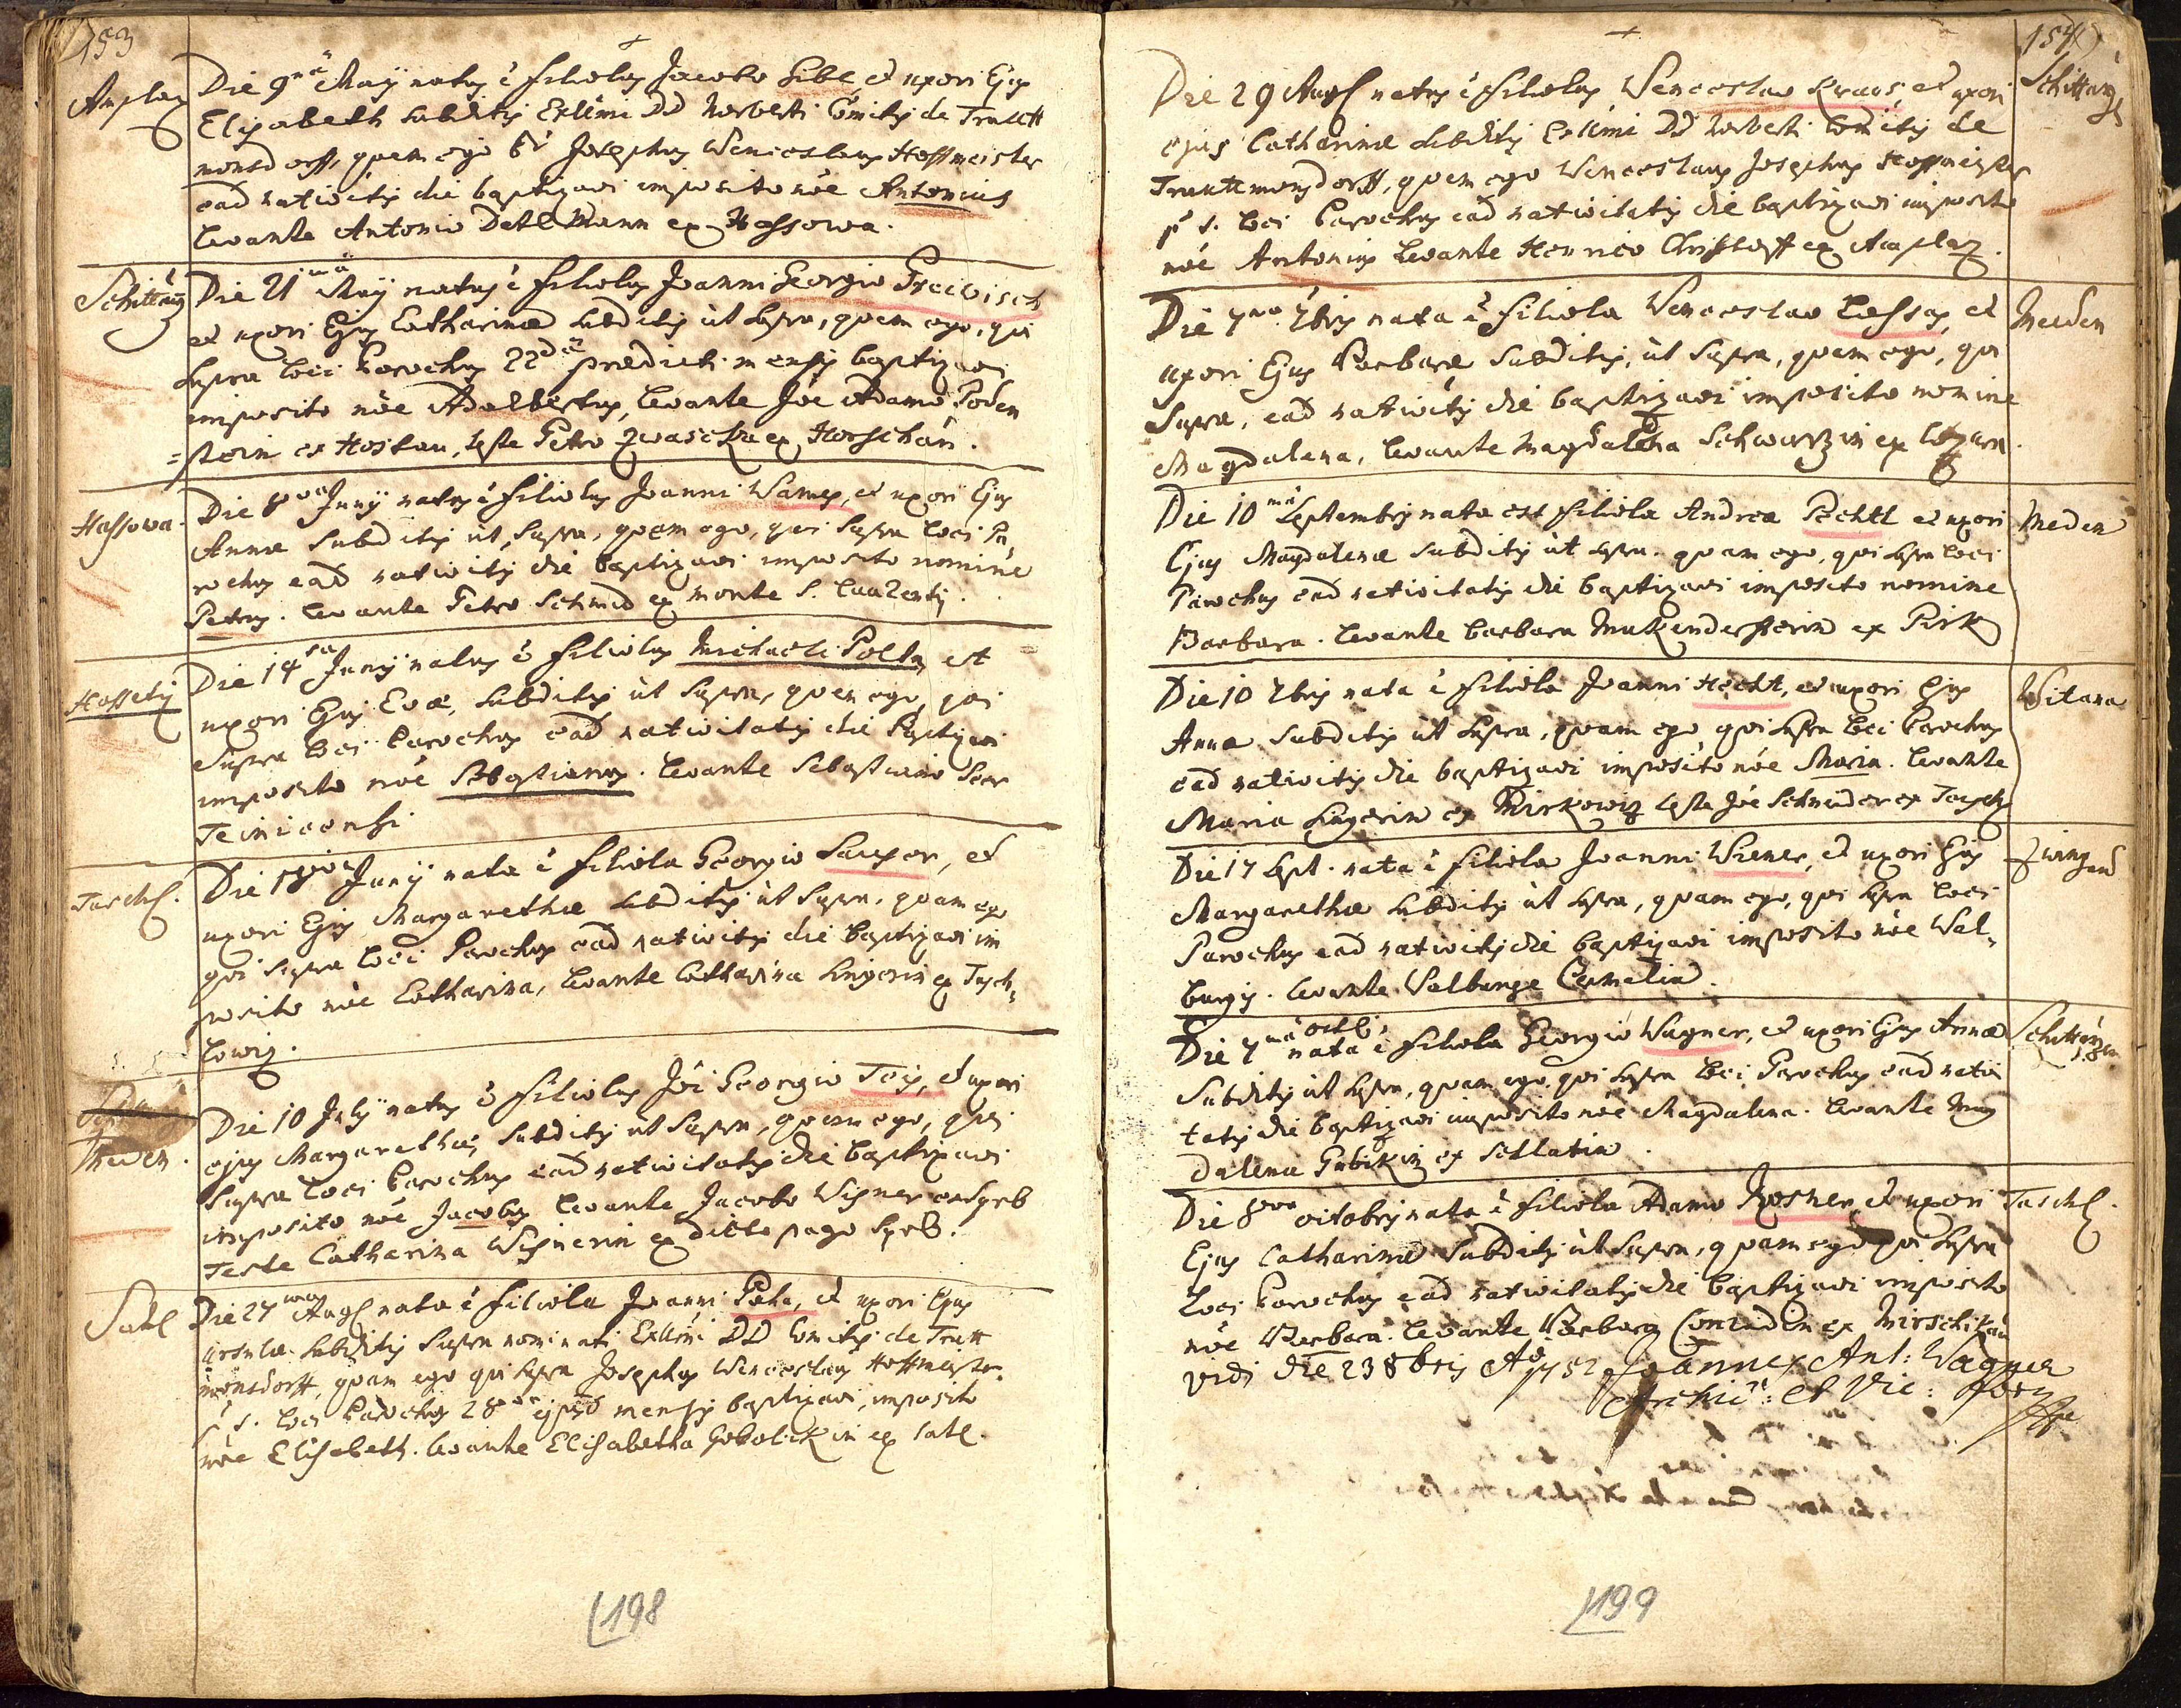 153
Amplaz
Die 9na Maÿ natus ē filiolus Jacobo Libl, et uxori Ejus
Elisabeth subditis Exllmi DD Norberti Comitis de Trautt
monsdorff, quem ego Josephus Wenceslaus Hoffmeister
ead nativitis die baptizavi imposito nōe Antonius
levante Antonio Dahlmann ex Hassowa.
Schittarz
Die 21ma Maÿ natus ē filiolus Joanni Georgio Treibisch
et uxori Ejus Catharinae subditis ut supra, quem ego, qui
supra loci Parochus 22da praedicti mensis baptizavi
imposito nōe Adalbertus, levante Jōe Adamo Poden
=stein ex Hostau, teste Petro ex Horschau.
Hassowa.
Die 8va Junÿ natus ē filiolus Joanni Wames, et uxori Ejus
Annae subditis ut supra, quem ego, qui supra loci Pa
rochus ead nativitis die baptizavi imposito nomine
Petrus. levante Petro Schmid ex monte S. Laurentij.
Hossetiz
Die 14ta Junÿ natus ē filiolus Michaeli Polta, et
uxori Ejus Evae, subditis ut supra, quem ego, qui
supra loci Parochus ead nativitatis die baptizavi
imposito nōe Sebastianus. levante Sebastiano
Teinicensi.
Taschl.
Die Junÿ nata ē filiola Georgio Sauper, et
uxori Ejus Margarethae subditis ut supra, quam ego
qui supra loci Parochus ead nativitis die baptizavi im
posito nōe Catharina, levante Catharina Lingerin ex Tasch,
lowiz.
Meden.
Die 10 Julÿ natus ē filiolus Jōi Georgio Teis, et uxori
ejus Margarethae, subditis ut supra, quem ego, qui
supra loci Parochus ead nativitatis die baptizavi
imposito nōe Jacobus levante Jacobo Wisner ex Syrb
Teste Catharina Wisnerin ex dicto pago Syrb.
Satl
Die 27ma Augl nata ē filiola Joanni Peha, et uxori Ejus
Ursulae subditis supra nominati Exllmi DD Comitis de Trutt
monsdorff, quam ego qui supra Josephus Wenceslaus Hoffmeister
p. t. loci Parochus 28va ejusd mensis baptizavi, imposito
nōe Elisabeth. levante Elisabetha Gobolickin ex Satl.
198
154
Schittarz
Die 29 Augl natus ē filiolus Wenceslao Kraus, et uxori
ejus Catharinae subditis Exllmi DD Norberti Comitis de
Trauttmonsdorff, quem ego Wenceslaus Josephus Hoffmeister
p. t. loci Parochus ead nativitatis die baptizavi imposito
nōe Antonius levante Henrico Christoff ex Amplaz.
Meeden
Die 7ma 7bris nata ē filiola Wenceslao Lessax, et
uxori Ejus Barbarae subditis, ut supra, quam ego, qui
supra, ead nativitis die baptizavi imposito nomine
Magdalena, levante Magdalena Schwarzin ex
Meden
Die 10ma Septembris nata est filiola Andrea Pechtl et uxori
Ejus Magdalenae subditis ut supra. quam ego, qui supra loci
Parochus ead nativitatis die baptizavi imposito nomine
Barbara. levante Barbara Mukendersterin ex Pirk
Witana
Die 10 7bris nata ē filiola Joanni Hecht, et uxori Ejus
Annae subditis ut supra, quam ego qui supra loci Parochus
ead nativitis die baptizavi imposito nōe Maria. levante
Maria Lingerin ex Mirkowiz teste Jōe Schneider ex Taschl
Zwingend
Die 17 Sept. nata ē filiola Joanni Wiener, et uxori Ejus
Margarethae subditis ut supra, quam ego, qui supra loci
Parochus ead nativitis die baptizavi imposito nōe Wal,
burgis. levante Walburga Cermelin.
Schittarzen
Die 7ma octl: nata ē filiola Georgio Wagner, et uxori Ejus Annae
subditis ut supra, quam ego, qui supra loci Parochus ead nativi
tatis die baptizavi imposito nōe Magdalena. levante Mag
dalena Gubikin ex Sellatin.
Taschl.
Die 8va octobris nata ē filiola Adamo Rosner, et uxori
Ejus Catharinae subditis ut supra, quam ego qui supra
loci Parochus ead nativitatis die baptizavi imposito
nōe Barbara. levante Barbara Conradin ex Mirschikau
Vidi die 23 8bris Ao 1752 Joannes Ant: Wagner
Archid: et Vic: For:
199